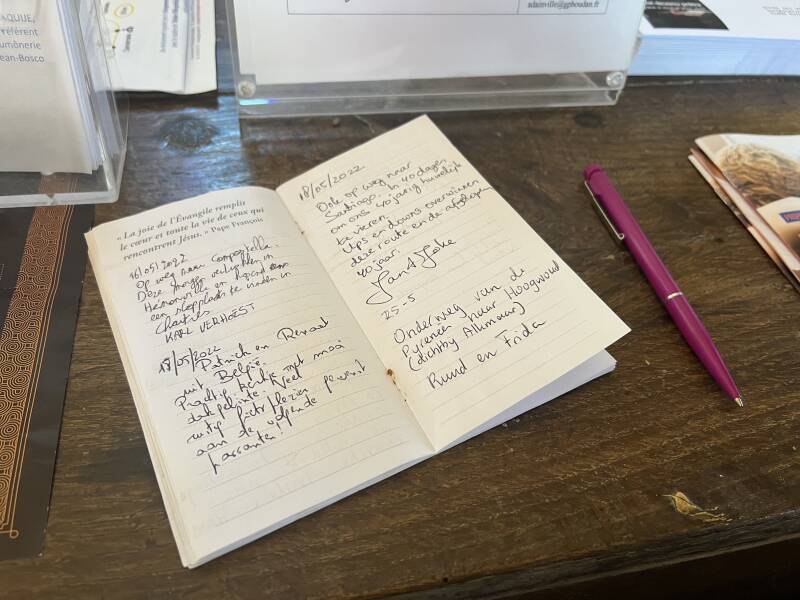 AQUIJE,
Référent
aumônerie
Jean-Bosco
adainville@gphoudan.fr
« La joie de l'Évangile remplit
le cœur et toute la vie de ceux qui
rencontrent Jésus. » Pape François
16/05/2022
Op weg naar Compostella.
Deze morgen vertrokken in
en
een slaapplaats te vinden in
Chartres
KARL VERHEEST
18/05/2022
Patrick en Renaat
uit België.
Prachtig kerkje met mooi
Veel
fietsplezier gewenst
aan de volgende
passanten!
18/05/2022
Ook op weg naar
Santiago. In 40 dagen
om ons 40 jarig huwelijk
te vieren.
Ups en downs overwinnen
deze route en de afgelopen
40 jaar.
Jan & Joke
25-5
Onderweg van de
Pyreneeën naar Hoogwoud
(dichtby Alkmaar)
Ruud en Frida